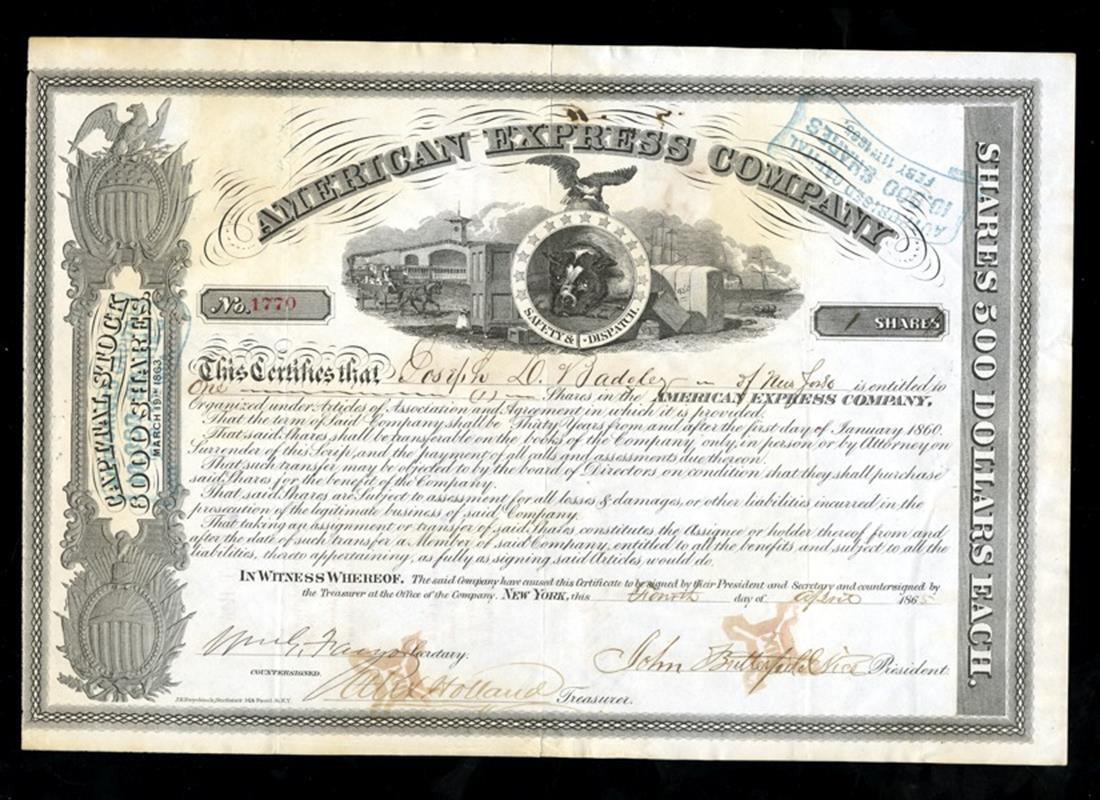 AMERICAN EXPRESS COMPANY
AUTHORISED CAPITAL
SHARES
FEBY 11TH 1863
SAFETY & DISPATCH
No. 1770
1 SHARES
CAPITAL STOCK
8000 SHARES.
MARCH 19TH 1863.
SHARES 500 DOLLARS EACH.
This Certifies that Joseph D. Badgley of New York is entitled to
One (1) Shares in the AMERICAN EXPRESS COMPANY,
Organized under Articles of Association and Agreement in which it is provided.
That the term of Said Company shall be Thirty Years from and after the first day of January 1860.
That said Shares shall be transferable on the books of the Company only, in person or by Attorney on
Surrender of this Scrip, and the payment of all calls and assessments due thereon.
That such transfer may be objected to by the board of Directors on condition that they shall purchase
said Shares for the benefit of the Company.
That said Shares are Subject to assessment for all losses & damages, or other liabilities incurred in the
prosecution of the legitimate business of said Company.
That taking an assignment or transfer of said Shares constitutes the Assignee or holder thereof from and
after the date of such transfer a Member of said Company, entitled to all the benefits and subject to all the
liabilities, thereto appertaining, as fully as signing said Articles, would do.
IN WITNESS WHEREOF. The said Company have caused this Certificate to be signed by their President and Secretary and countersigned by
the Treasurer at the Office of the Company. NEW YORK, this Fourth day of April 1865
Wm G. Fargo Secretary.
John Butterfield Vice President.
COUNTERSIGNED.
Holland Treasurer.